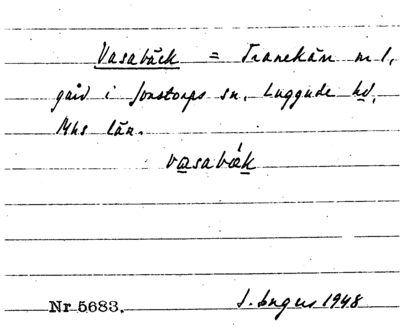 Vasabäck = Tranekärr nr 1,
gård i Jonstorps sn, Luggude hd,
Mhs län.
vasabæ̀k
Nr 5683. S. Ingers 1948